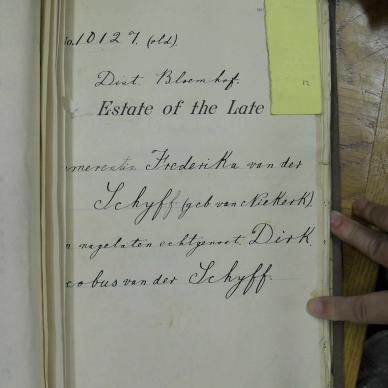 No. 10127. (old).
Dist. Bloemhof.
Estate of the Late
Frederika van der
Schyff (geb van Niekerk).
nagelaten echtgenoot. Dirk
cobus van der Schyff.